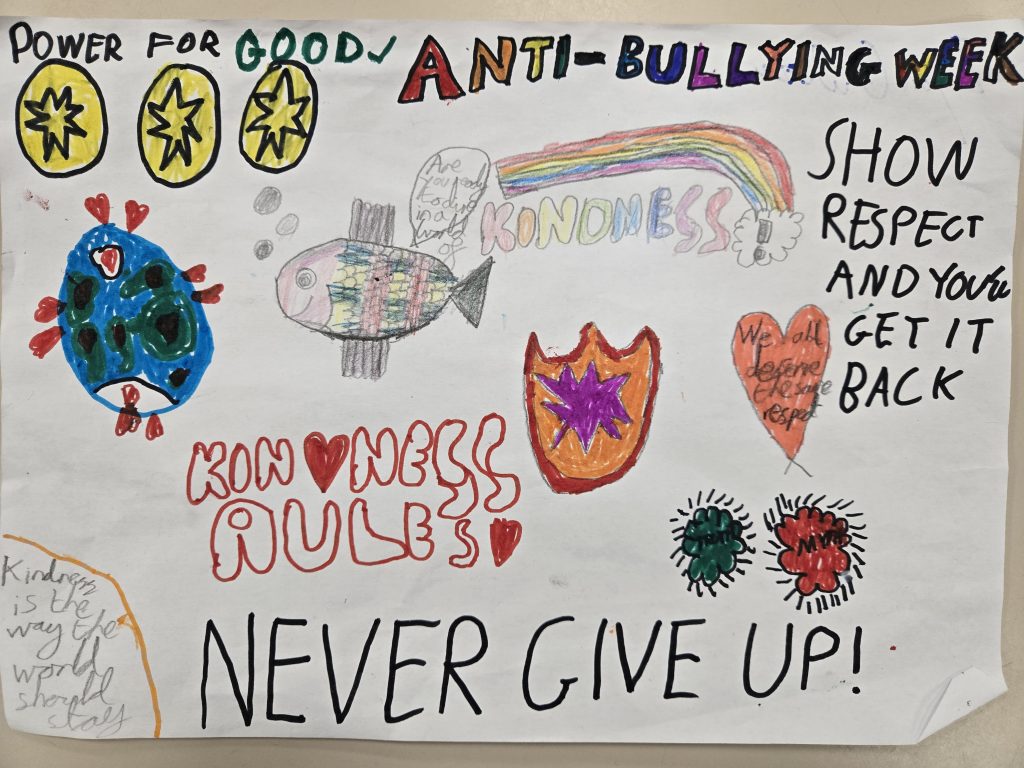 POWER FOR GOOD
ANTI-BULLYING WEEK
Are
you ready
today
in a
world
of
KINDNESS
SHOW
RESPECT
AND YOU'll
GET IT
BACK
We all
deserve
the same
respect
KINDNESS
RULES
Kindness
is the
way the
world
should
stay
NEVER GIVE UP!